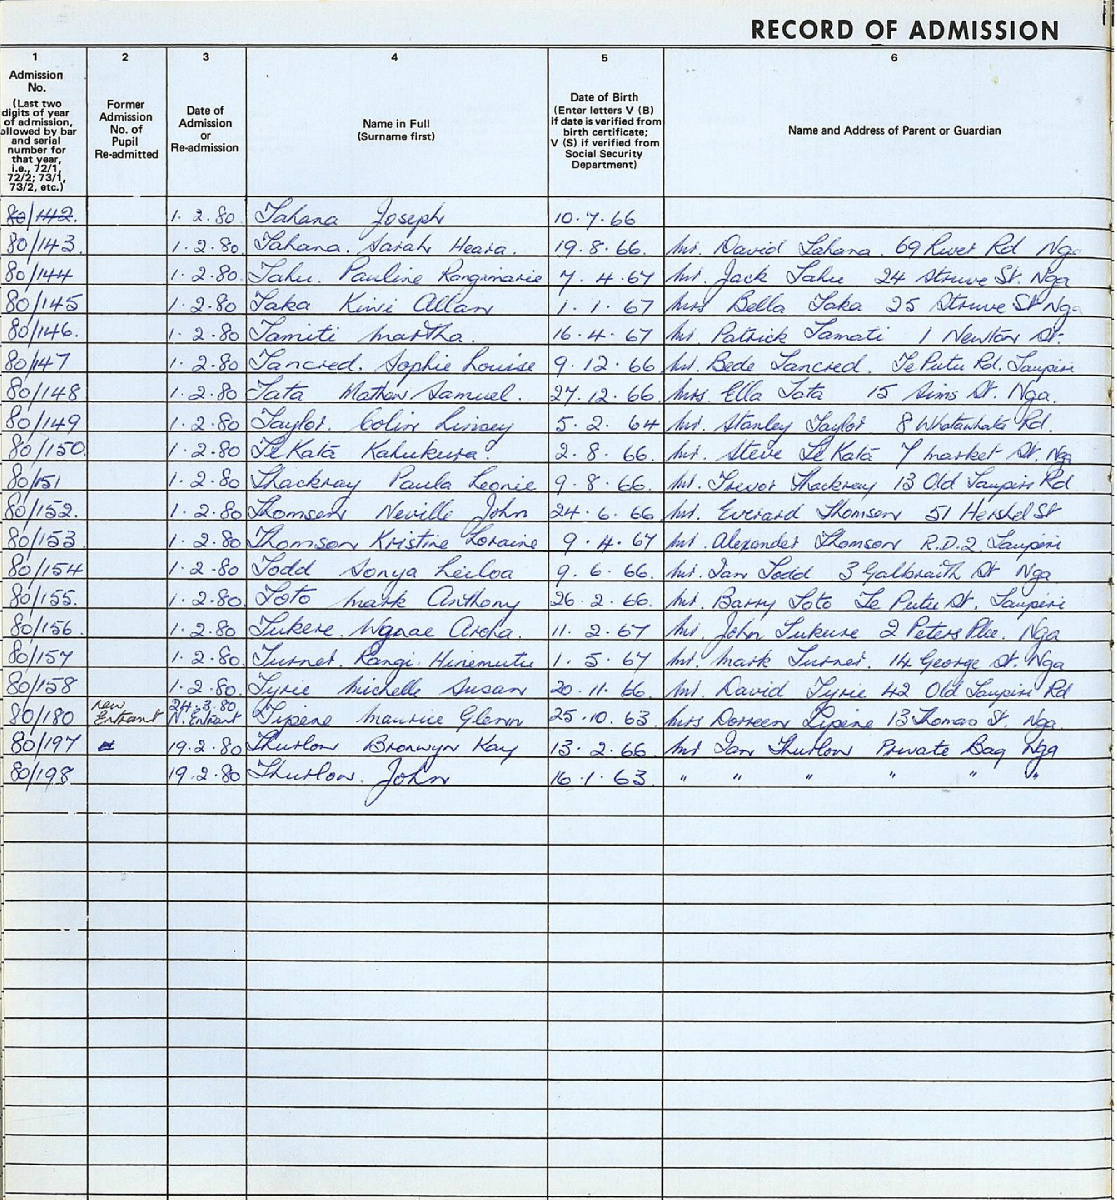 RECORD OF ADMISSION
1 2 3 4 5 6
Admission No. (Last two digits of year of admission, ollowed by bar and serial number for that year, i.e., 72/1, 72/2; 73/1, 73/2, etc.) Former Admission No. of Pupil Re-admitted Date of Admission or Re-admission Name in Full (Surname first) Date of Birth (Enter letters V (B) if date is verified from birth certificate; V (S) if verified from Social Security Department) Name and Address of Parent or Guardian
80/142. 1.2.80. Tahana Joseph 10.7.66
80/143. 1.2.80. Tahana. Sarah Heara. 19.8.66. Mr. David Tahana. 69 River Rd Nga
80/144 1.2.80. Tahu. Pauline Rangimarie 7.4.67 Mr. Jack Tahu 24 Struve St. Nga
80/145 1.2.80. Taka Kiwi Allan 1.1.67 Mrs Bella Taka 25 Struve St Nga
80/146. 1.2.80. Tamiti Martha. 16.4.67 Mr. Patrick Tamati 1 Newton St.
80/147 1.2.80. Tancred. Sophie Louise 9.12.66 Mr. Bede Tancred. Te Putu Rd. Taupiri
80/148 1.2.80. Tata Mathew Samuel. 27.12.66. Mrs. Ella Tata 15 Sims St. Nga.
80/149 1.2.80. Taylor. Colin Linsey 5.2.64 Mr. Stanley Taylor 8 Whatawhata Rd.
80/150. 1.2.80. Te Kata Kahukura 2.8.66. Mr. Steve Te Kata 7 Market St. Nga
80/151 1.2.80. Thackray Paula Leonie 9.8.66. Mr. Trevor Thackray 13 Old Taupiri Rd
80/152. 1.2.80. Thomson Neville John 24.6.66 Mr. Everard Thomson 51 Hershel St
80/153 1.2.80. Thomson Kristine Loraine 9.4.67 Mr. Alexander Thomson R.D.2. Taupiri
80/154 1.2.80 Todd Sonya 9.6.66. Mr. Ian Todd 3 Galbraith St Nga
80/155. 1.2.80. Toto Mark Anthony 26.2.66. Mr. Barry Toto Te Putu St. Taupiri
80/156. 1.2.80. Tukere. Aroha. 11.2.67 Mr. John Tukere 2 Peters Plce. Nga
80/157 1.2.80. Turner. Rangi. Hinemutu 1.5.67 Mr. Mark Turner. 14 George St. Nga
80/158 1.2.80. Tyrie Michelle Susan 20.11.66. Mr. David Tyrie 42 Old Taupiri Rd
80/180 New Entrant 24.3.80 N. Entrant Tipene Maurice Glenn 25.10.63 Mrs Dorreen Tipene 13 Thomas St. Nga.
80/197 19.2.80. Thurlow Bronwyn Kay 13.2.66 Mr Ian Thurlow Private Bag Nga
80/198 19.2.80 Thurlow. John 16.1.63. " " " " " "